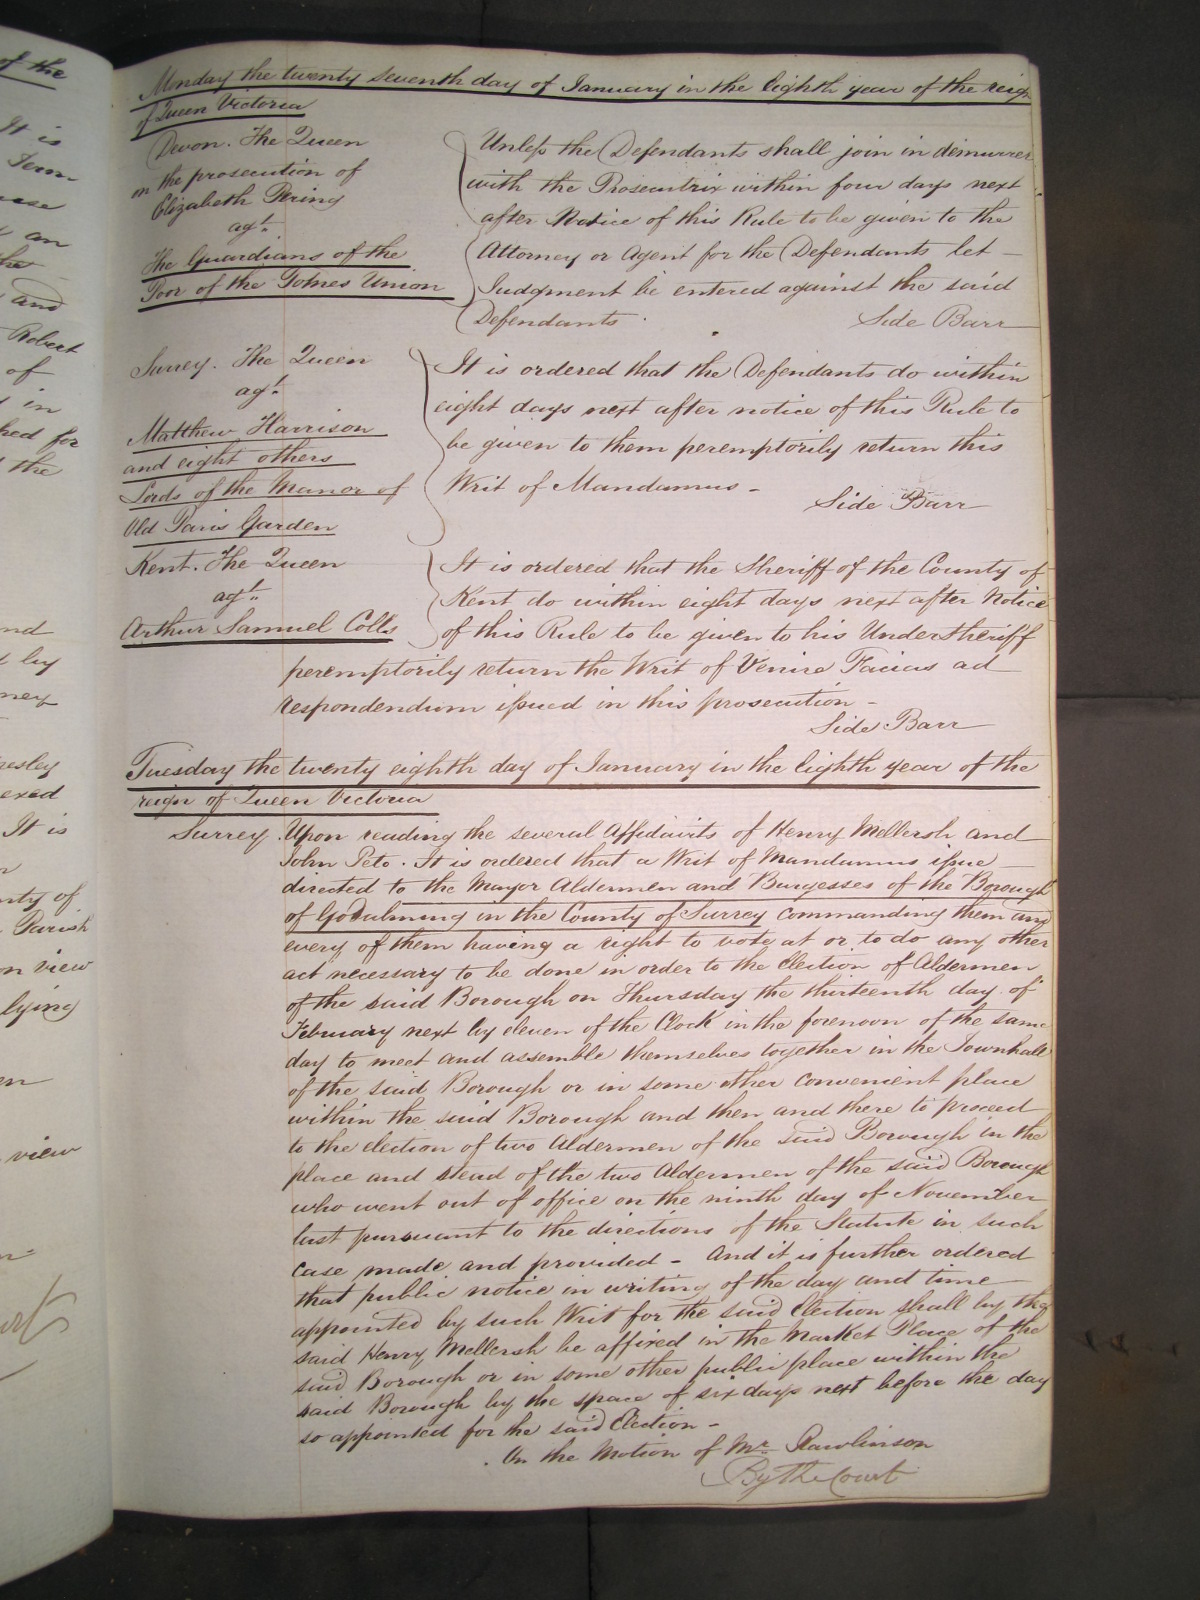 of the
It is
Term
an
the
and
Robert
of
in
for
the
and
by
It is
nty of
Parish
on view
lying
view
Monday the twenty seventh day of January in the Eighth year of the reign
of Queen Victoria
Devon. The Queen
on the prosecution of
Elizabeth Pering
agt.
The Guardians of the
Poor of the Totnes Union
Unless the Defendants shall join in demurrer
with the Prosecutrix within four days next
after Notice of this Rule to be given to the
Attorney or Agent for the Defendants let –
Judgment be entered against the said
Defendants.
Side Barr
Surrey. The Queen
agt.
Matthew Harrison
and eight others
Lords of the Manor of
Old Paris Garden
It is ordered that the Defendants do within
eight days next after notice of this Rule to
be given to them peremptorily return this
Writ of Mandamus –
Side Barr
Kent. The Queen
agt.
Arthur Samuel Colls
It is ordered that the Sheriff of the County of
Kent do within eight days next after Notice
of this Rule to be given to his UnderSheriff
peremptorily return the Writ of Venire Facias ad
respondendum issued in this prosecution –
Side Barr
Tuesday the twenty eighth day of January in the Eighth year of the
reign of Queen Victoria
Surrey. Upon reading the several Affidavits of Henry Mellersh and
John Peto. It is ordered that a Writ of Mandamus issue
directed to the Mayor Aldermen and Burgesses of the Borough
of Godalming in the County of Surrey commanding them and
every of them having a right to vote at or to do any other
act necessary to be done in order to the Election of Aldermen
of the said Borough on Thursday the thirteenth day of
February next by eleven of the Clock in the forenoon of the same
day to meet and assemble themselves together in the Townhall
of the said Borough or in some other convenient place
within the said Borough and then and there to proceed
to the election of two Aldermen of the said Borough in the
place and stead of the two Aldermen of the said Borough
who went out of office on the ninth day of November
last pursuant to the directions of the Statute in such
case made and provided – And it is further ordered
that public notice in writing of the day and time
appointed by such Writ for the said Election shall by the
said Henry Mellersh be affixed in the Market Place of the
said Borough or in some other public place within the
said Borough by the space of six days next before the day
so appointed for the said Election –
On the Motion of Mr. Rawlinson
By the Court